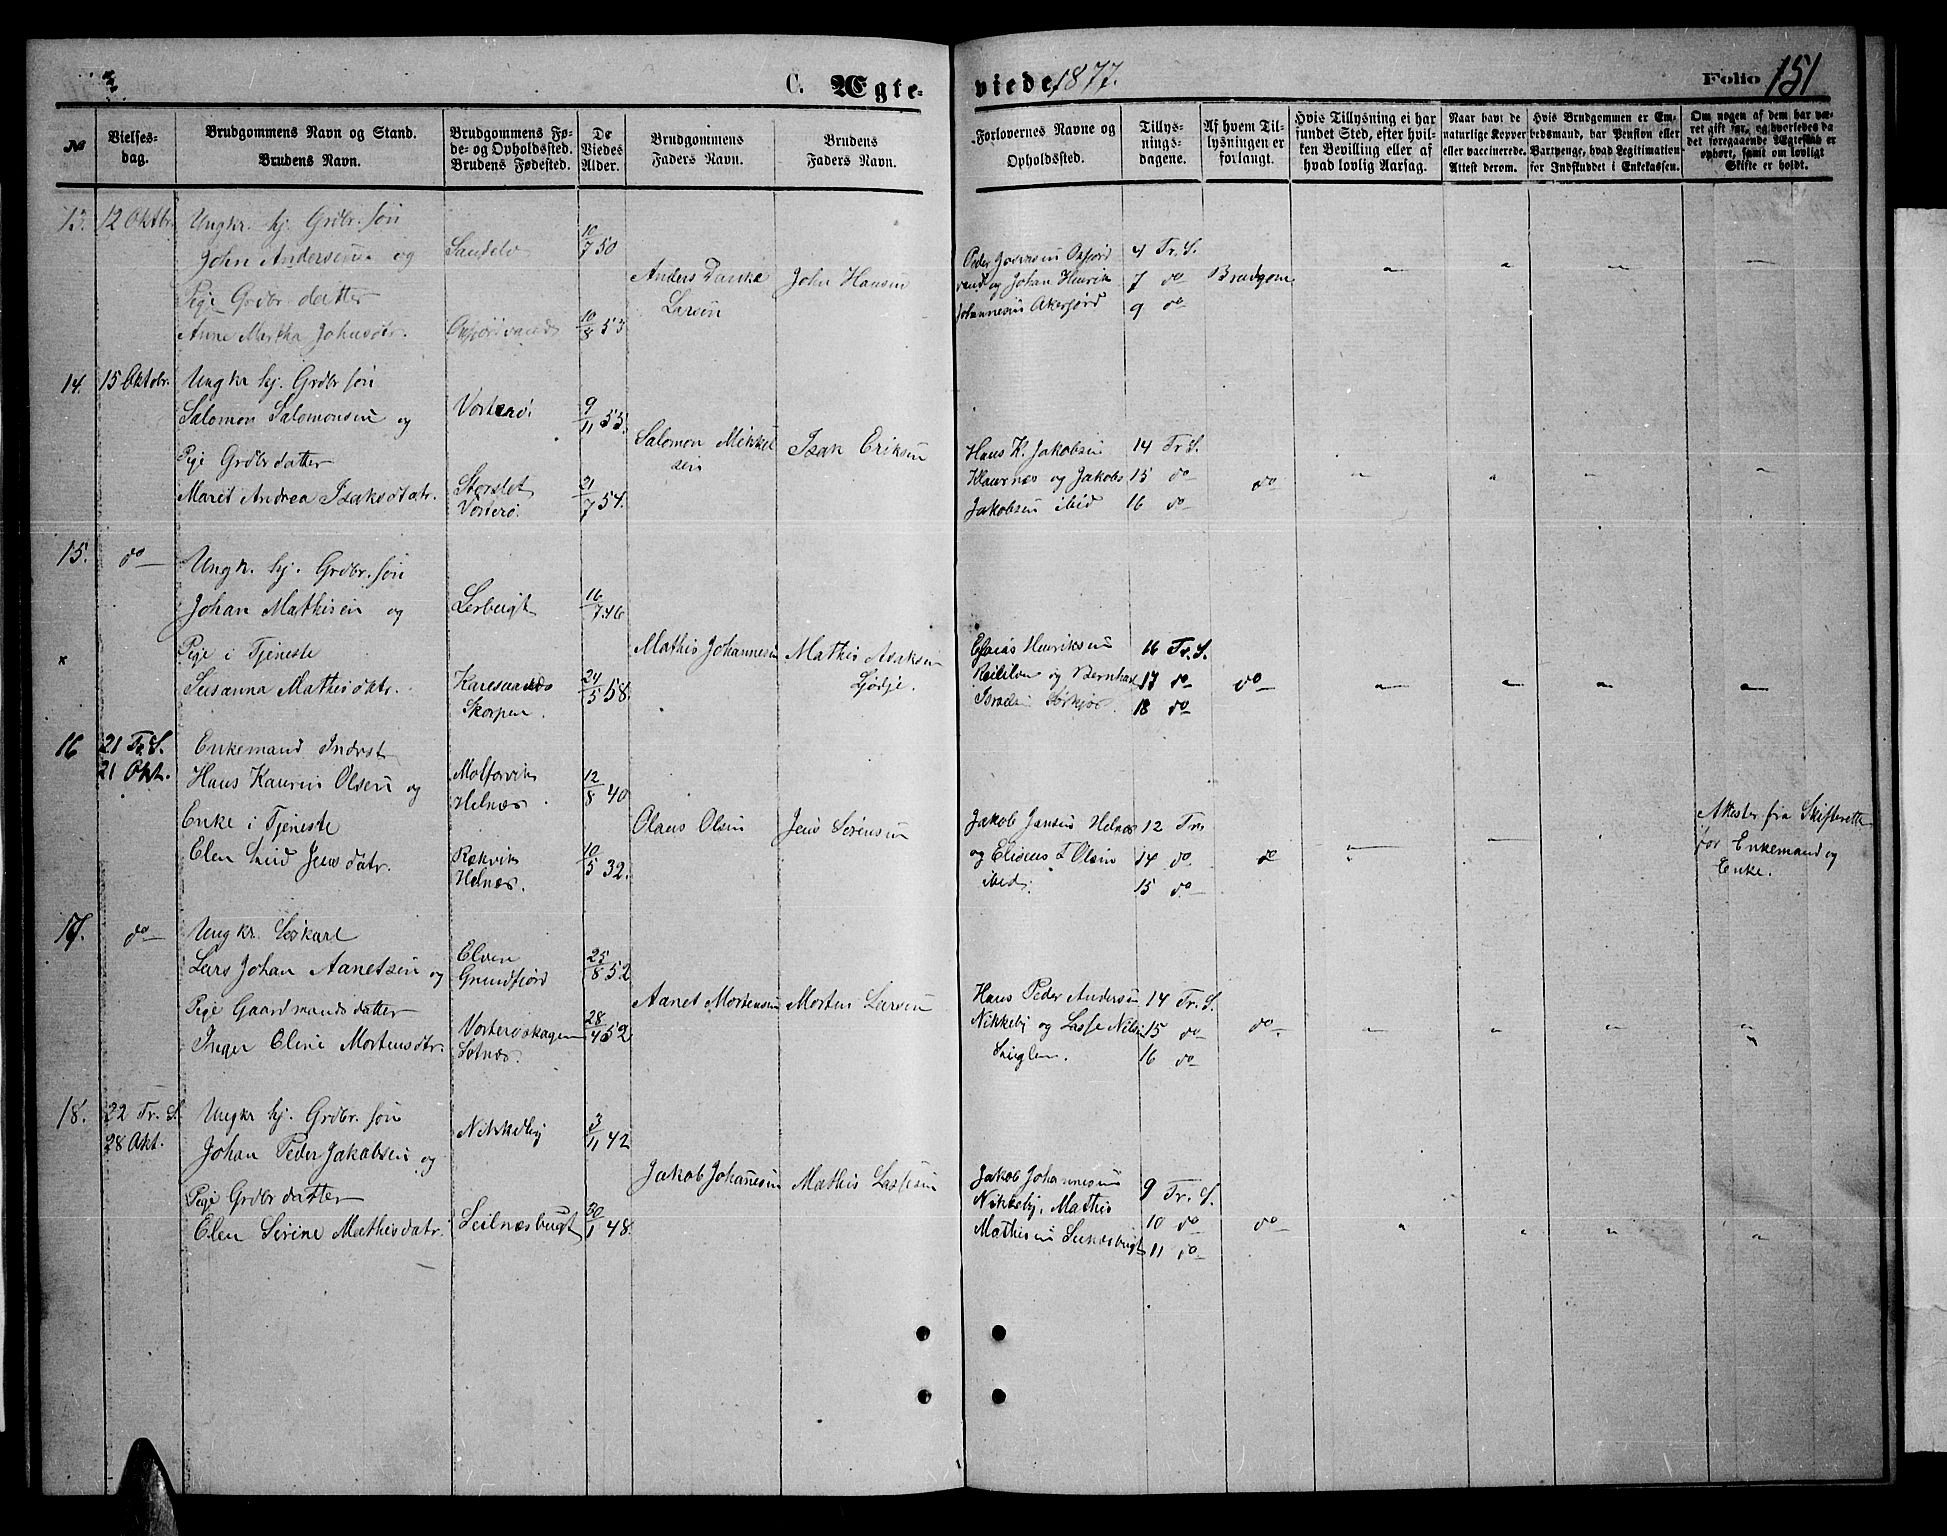 C. Ægte-
viede 1877.
Folio 151
№
Vielses-
dag.
Brudgommens Navn og Stand.
Brudens Navn.
Brudgommens Fø-
de- og Opholdssted.
Brudens Fødested.
De
Viedes
Alder.
Brudgommens
Faders Navn.
Brudens
Faders Navn.
Forlovernes Navne og
Opholdssted.
Tillys-
nings-
dagene.
Af hvem Til-
lysningen er
forlangt.
Hvis Tillysning ei har
fundet Sted, efter hvil-
ken Bevilling eller af
hvad lovlig Aarsag.
Naar havt de
naturlige Kopper
eller vaccinerede.
Attest derom.
Hvis Brudgommen er Em-
bedsmand, har Pension eller
Vartpenge, hvad Legitimation
for Indskuddet i Enkekassen.
Om nogen af dem har væ-
ret gift før, og hvorledes da
det foregaaende Ægteskab er
ophørt, samt om lovligt
Skifte er holdt.
13. 12 Oktbr.
Ungkr. hj. Grdbr. søn
John Andersen og
Pige Grdbr datter
Anne Martha Johnsdtr.
10/7 50
10/8 53
Anders
Larsen
John Hansen
Peder
og Johan Henrik
Johannesen
4 Tr. S.
7 do
9 do
Brudgom
14. 15 Oktobr.
Ungkr hj. Grdbr søn
Salomon Salomonsen og
Pige Grdbr datter
Maret Andrea Isaksdatr.
Vorterø.
Storslet
Vorterø.
9/11 55.
21/7 54.
Salomon Mikkel
sen
Isak Eriksen
Hans K. Jakobsen
Klauvnæs og Jakob
Jakobsen ibid
14 Tr. S.
15 do
16 do
do
15. do
Ungkr. hj. Grdbr. søn
Johan Mathisen og
Pige i Tjeneste
Susanna Mathisdatr.
Lerbugt
Karesuando
Skorpen.
16/7 46
24/5 58
Mathis Johannesen
Mathis
Esaias Henriksen
og Bernhard
16 Tr. S.
17 do
18 do
do
16 21 Tr. S.
21 Okt.
Enkemand Inderst
Hans Kaurin Olsen og
Enke i Tjeneste
Elen Jensdatr.
Helnæs.
Rekvik
Helnæs.
12/8 40
10/5 32.
Olaus Olsen
Jens Sørensen
Jakob Jensen Helnæs
og Eliseus Olsen
ibid.
12 Tr.
14 do.
15 do
do
Attester fra Skifteretten
for Enkemand og
Enke.
17. do
Ungkr. Søkarl
Lars Johan Aanetsen og
Pige Gaardmandsdatter
Inger Eline Mortensdtr.
Elven
Grundfjord
Vorterøskagen
Sotnæs.
25/8 52
28/4 52
Aanet Mortensen
Morten Larsen
Hans Peder Andersen
Nikkeby og Lasse Nilsen
14 Tr. S.
15 do
16 do
do
18. 22 Tr. S.
28 Okt.
Ungkr hj. Grdbr. søn
Johan Peder Jakobsen og
Pige Grdbr datter
Elen Serine Mathisdatr.
Nikkeby
Leilnæsbugt
3/11 42
30/1 48.
Jakob Johannesen
Mathis Lassesen
Jakob Johannesen
Nikkeby, Mathis
Mathisen
9 Tr. S.
10 do
11 do
do